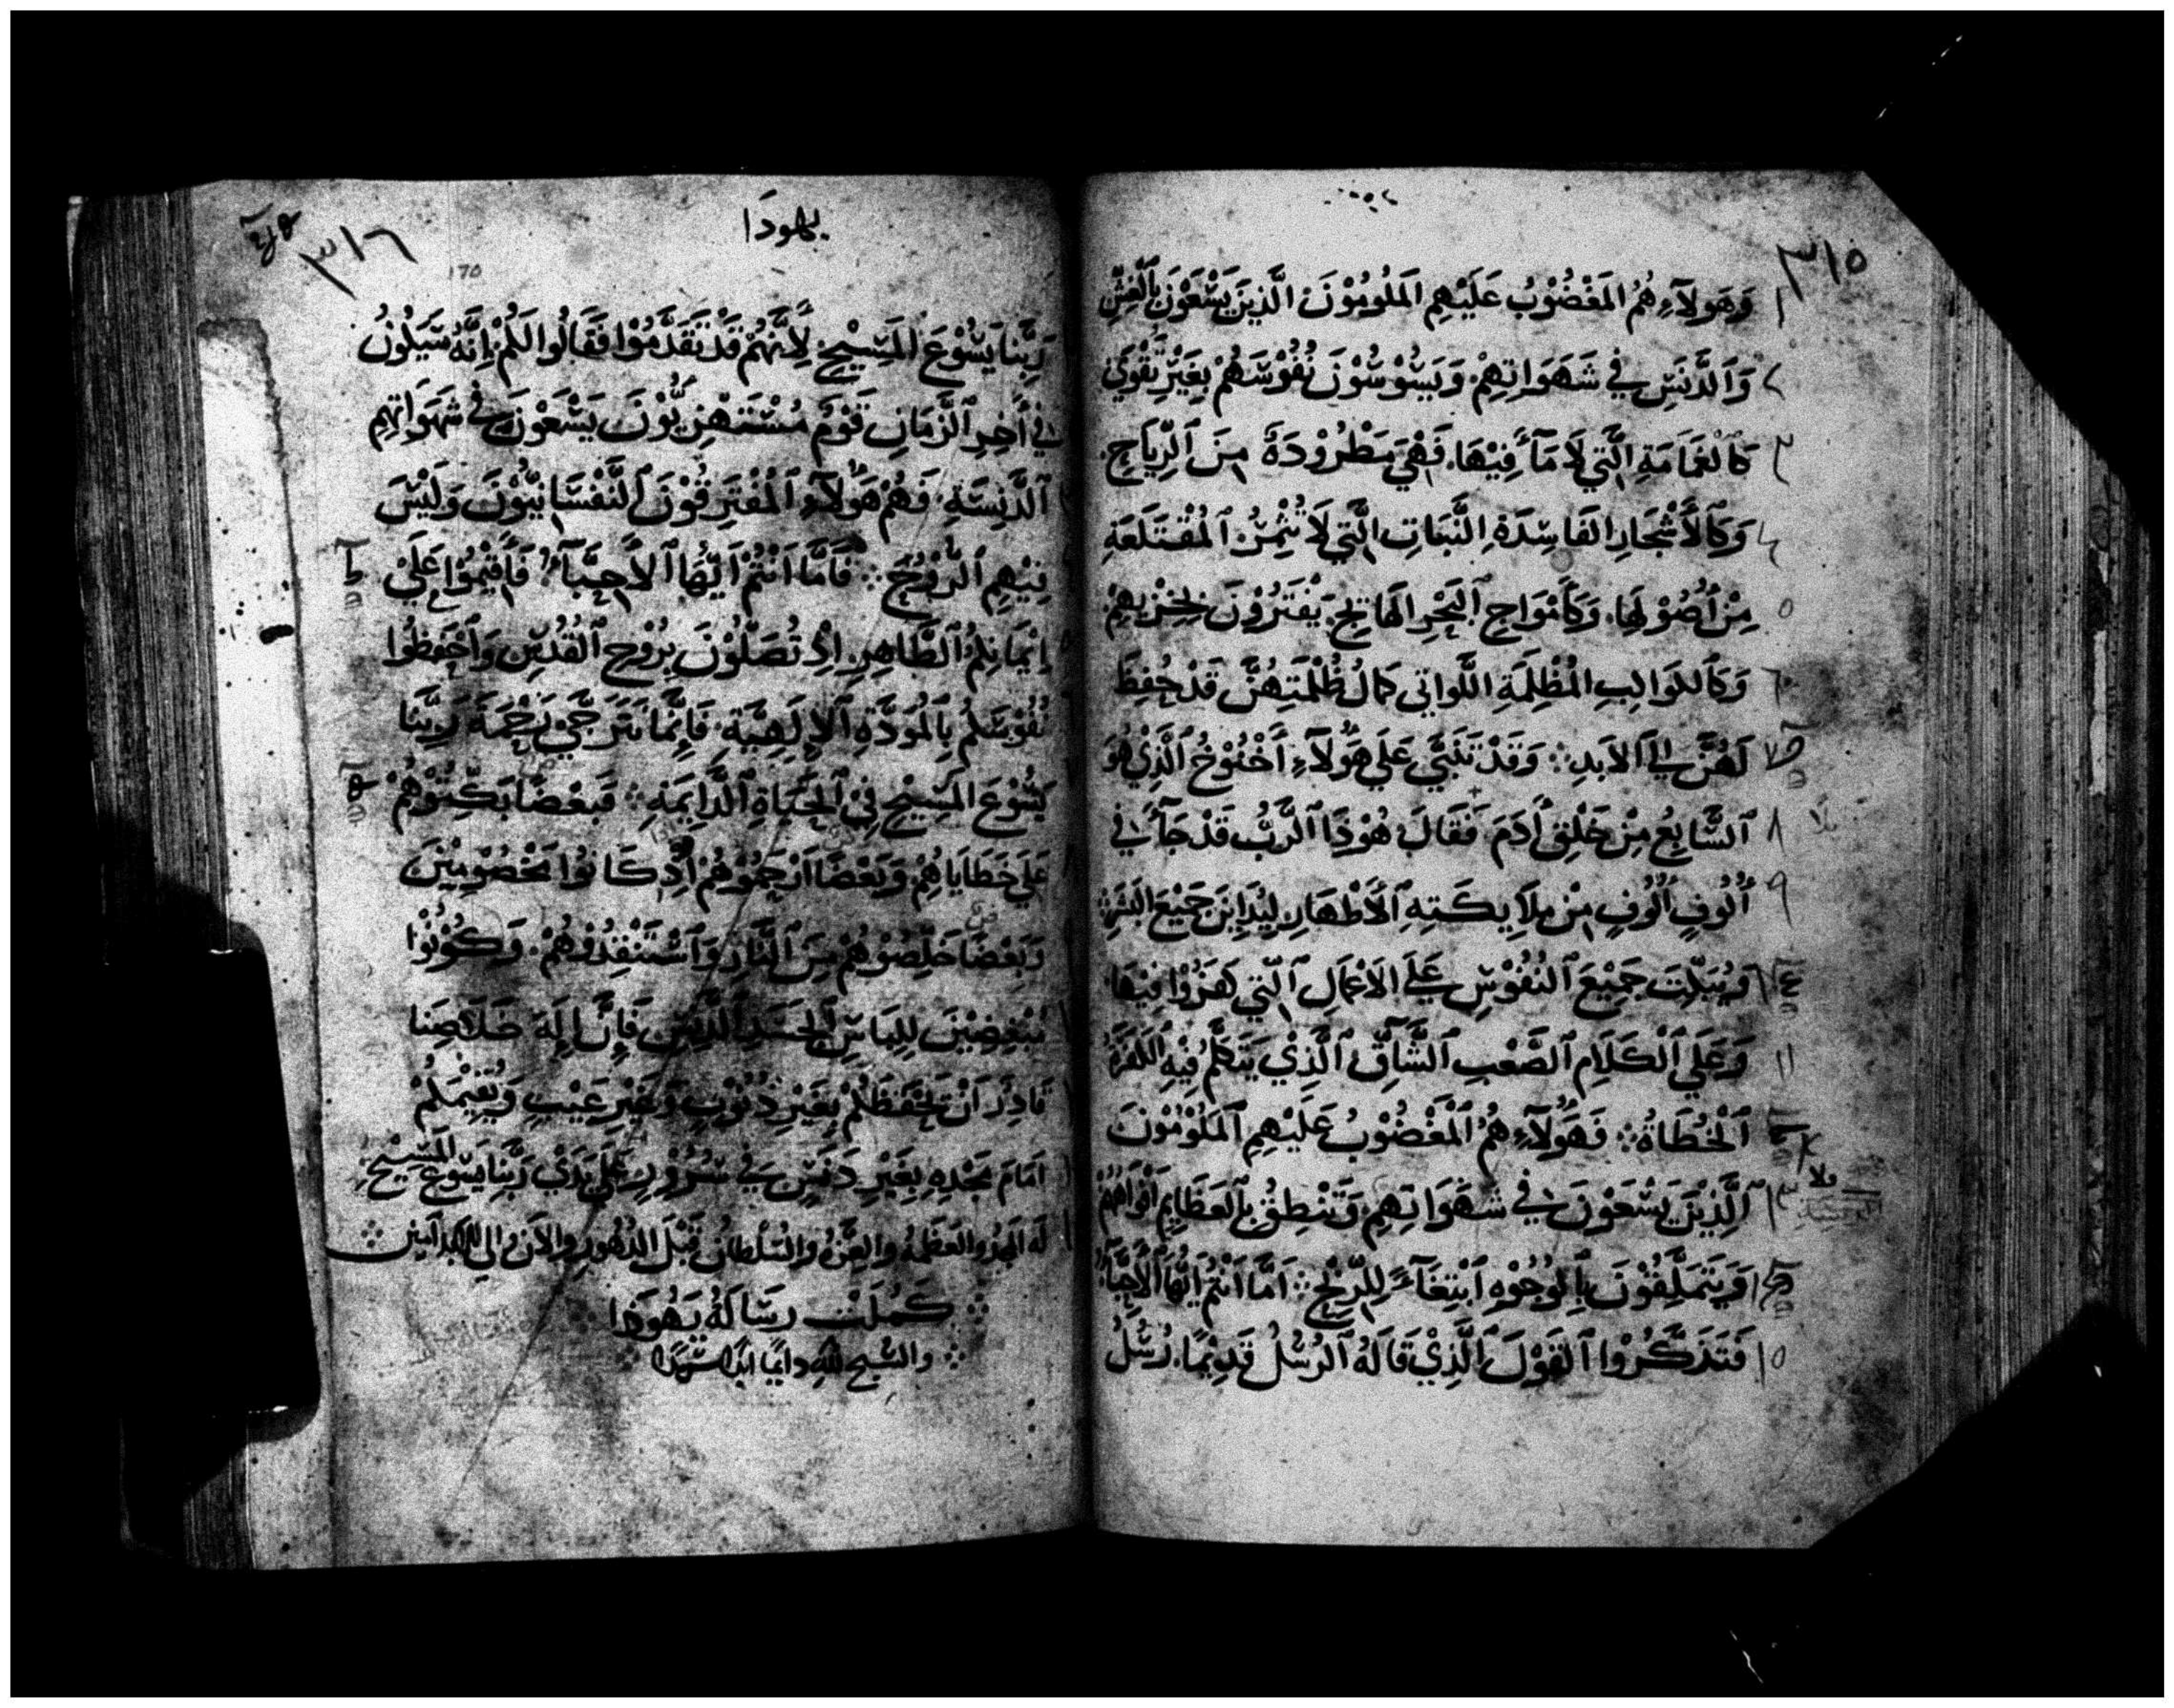 ٣١٥
١ وَهَولَآءِ هُمُ المَغْضُوْبُ عَلَيْهِمِ المَلُومُوْنَ الَّذِينَ يَسْعَوْنَ بِٱلْغِشِّ
٢ وَٱلدَّنَسِ فِي شَهَوَاتِهِمْ. وَيَسُوْسُوْنَ نُفُوْسَهُمْ بِغَيْرِ تَقْوَي
٣ كَٱلْغَمَامَةِ الَّتِي لَا مَآءَ فِيْهَا. فَهِيَ مَطْرُوْدَةٌ مِنَ ٱلرِّيَاحِ.
٤ وَكَٱلأَشْجَارِ الفَاسِدَةِ النَّبَاتِ الَّتِي لَا تُثْمِرُ ٱلمُقْتَلَعَةِ
٥ مِنْ أُصُوْلِهَا. وَكَأَمْوَاجِ ٱلبَحْرِ الهَائِجِ. يَفْتَرُوْنَ بِخِزْيِهِمْ.
٦ وَكَٱلكَوَاكِبِ المُظْلِمَةِ اللَّوَاتِي كَمَالُ ظُلْمَتِهِنَّ قَدْ حُفِظَ
٧ لَهُنَّ اِلَي ٱلاَبَدِ ۞ وَقَدْ تَنَبَّي عَلَي هَؤُلَآءِ أَخْنُوْخُ ٱلَّذِيْ هُوَ
٨ ٱلسَّابِعُ مِنْ خَلْقِ أَدَمَ. فَقَالَ هُوْذَا ٱلرَّبُّ قَدْ جَآءَ فِي
٩ أُلُوفٍ أُلُوفٍ مِنْ مِلَايِكَتِهِ ٱلأَطْهَارِ لِيُدَايِنَ جَمِيْعَ البَشَرِ
١٠ وَيُبَكِّتَ جَمِيْعَ ٱلنُفُوْسِ عَلَي ٱلاَعْمَالِ ٱلَّتِي كَفَرُوْا فِيْهَا.
١١ وَعَلَي ٱلْكَلَامِ ٱلصَّعْبِ ٱلشَّاقِّ ٱلَّذِيْ يَتَكَلَّمُ فِيْهِ الكَفَرَةُ
ٱلْخُطَاةُ ۞ فَهَؤُلَآءِ هُمُ ٱلْمَغْضُوْبُ عَلَيْهِمِ ٱلمَلُوْمُوْنَ
١٣ ٱلَّذِيْنَ يَسْعَوْنَ فِي شَهَوَاتِهِمِ. وَتَنْطِقُ بِٱلعَظَايِمِ أَفْوَاهُهُمْ
وَيَتَمَلَّقُوْنَ بِٱلوُجُوْهِ ٱبْتِغَآءً لِلرِّبْحِ ۞ اَمَّا اَنْتُمْ اَيُّهَا ٱلأَحِبَّآءُ
١٥ فَتَذَكَّرُوْا ٱلقَوْلَ ٱلَّذِيْ قَالَهُ ٱلرُسُلُ قَدِيْمًا. رُسُلُ
يهودَا
٣١٦
170
رَبِّنَا يَسُوْعَ المَسِيْحِ. لأَنَّهُمْ قَدْ تَقَدَّمُوْا فَقَالُوا لَكُمْ إِنَّهُ سَيَكُوْنُ
فِي أَخِرِ ٱلزَّمَانِ قَوْمٌ مُسْتَهْزِيُّوْنَ يَسْعَوْنَ فِي شَهَوَاتِهِمِ
ٱلدَّنِسَةِ. فَهُمْ هَؤُلَآءِ ٱلْمُفْتَرِقُوْنَ ٱلنَّفْسَانِيُّوْنَ وَلَيْسَ
فِيْهِمِ ٱلرُّوْحُ ۞ فَأَمَّا اَنْتُمْ اَيُّهَا ٱلأَحِبَّآءُ فَأَقِيْمُوْا عَلَيْ
إِيْمَانِكُمُ ٱلطَّاهِرِ. اِذْ تُصَلُّوْنَ بِرُوْحِ ٱلقُدُسِ وَٱحْفَظُوا
نُفُوْسَكُمْ بِالمَوَدَّةِ ٱلإِلَهِيَّةِ. فَإِنَّمَا نَتَرَجَّي رَحْمَةَ رَبِّنَا
يَسُوْعَ المَسِيْحِ فِيْ ٱلحَيَاةِ ٱلدَّايِمَةِ ۞ فَبَعْضًا بَكِّتُوْهُمْ
عَلَي خَطَايَاهُمْ وَبَعْضًا ٱرْحَمُوْهُمْ اِذْ كَانُوا مَخْصُوْمِيْنَ
وَبَعْضًا خَلِّصُوْهُمْ مِنَ ٱلنَّارِ وَٱسْتَنْقِذُوْهُمْ. وَكُوْنُوْا
مُبْغِضِيْنَ لِلِبَاسِ ٱلجَسَدِ ٱلدَّنِسِ فَإِنَّ إِلَهَ خَلَاصِنَا
قَادِرٌ اَنْ يَحْفَظَكُمْ بِغَيْرِ ذُنُوْبٍ وَبِغَيْرِ عَيْبٍ وَيُقِيْمَكُمْ
اَمَامَ مَجْدِهِ بِغَيْرِ دَنَسٍ فِي سُرُوْرٍ عَلَي يَدَيْ رَبِّنَا يَسُوْعَ المَسِيْحِ.
لَهُ المَجْدُ والعَظَمَةُ والعِزَّةُ والسُلْطَانُ قَبْلَ الدُهُورِ والآنَ وإلي الأبد آمين ۞
۞ كَمُلَتْ رِسَالَةُ يَهُوذَا
۞ والسُّبحُ للهِ دايمًا ابدًا سرمدًا ۞